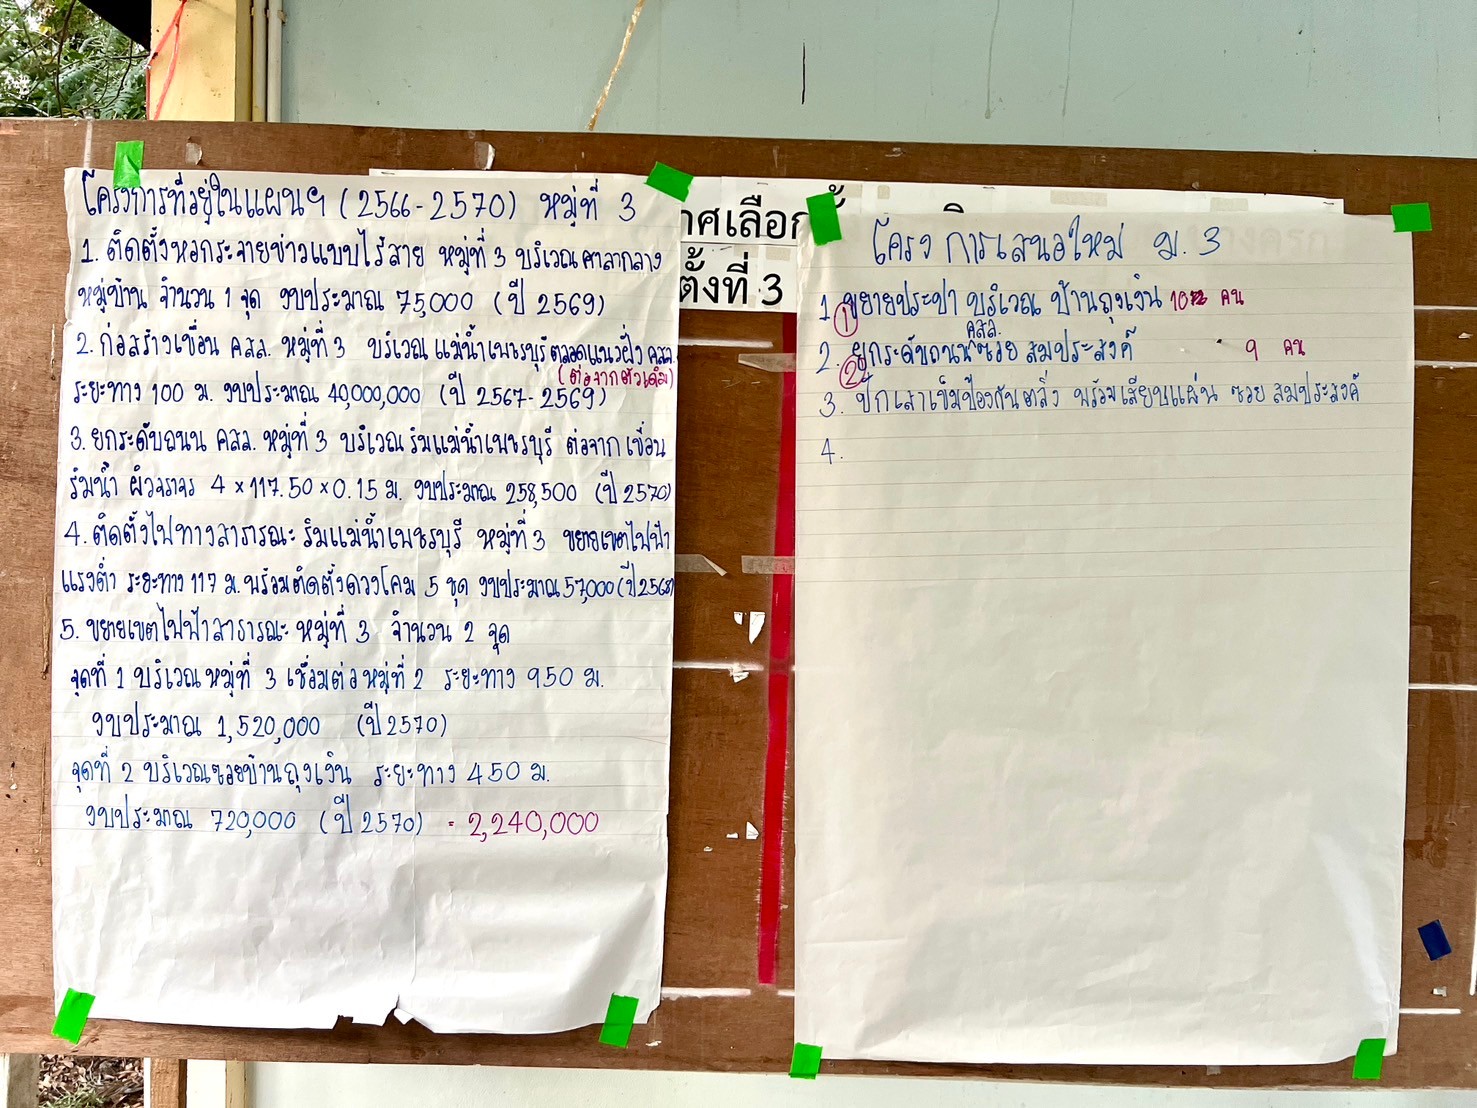 โครงการที่อยู่ในแผนฯ (2566-2570) หมู่ที่ 3
1. ติดตั้งหอกระจายข่าวแบบไร้สาย หมู่ที่ 3 บริเวณศาลากลาง
หมู่บ้าน จำนวน 1 จุด งบประมาณ 75,000 (ปี 2569)
2. ก่อสร้างเขื่อน คสล. หมู่ที่ 3 บริเวณแม่น้ำเพชรบุรีตลอดแนวฝั่ง คสล.
(ต่อจากตัวเดิม)
ระยะทาง 100 ม. งบประมาณ 40,000,000 (ปี 2567-2569)
3. ยกระดับถนน คสล. หมู่ที่ 3 บริเวณริมแม่น้ำเพชรบุรี ต่อจากเขื่อน
ริมน้ำ ผิวจราจร 4 × 117.50 × 0.15 ม. งบประมาณ 258,500 (ปี 2570)
4. ติดตั้งไฟทางสาธารณะริมแม่น้ำเพชรบุรี หมู่ที่ 3 ขยายเขตไฟฟ้า
แรงต่ำ ระยะทาง 117 ม. พร้อมติดตั้งดวงโคม 5 ชุด งบประมาณ 57,000 (ปี 2568)
5. ขยายเขตไฟฟ้าสาธารณะ หมู่ที่ 3 จำนวน 2 จุด
จุดที่ 1 บริเวณหมู่ที่ 3 เชื่อมต่อหมู่ที่ 2 ระยะทาง 950 ม.
งบประมาณ 1,520,000 (ปี 2570)
จุดที่ 2 บริเวณซอยบ้านถุงเงิน ระยะทาง 450 ม.
งบประมาณ 720,000 (ปี 2570) = 2,240,000
าศเลือก
ตั้งที่ 3
โครงการเสนอใหม่ ม. 3
1. ขยายประปา บริเวณ บ้านถุงเงิน 10 คน
①
คสล.
2. ยกระดับถนนซอย สมประสงค์ 9 คน
②
3. ปักเสาเข็มป้องกันตลิ่ง พร้อมเสียบแผ่น ซอย สมประสงค์
4.